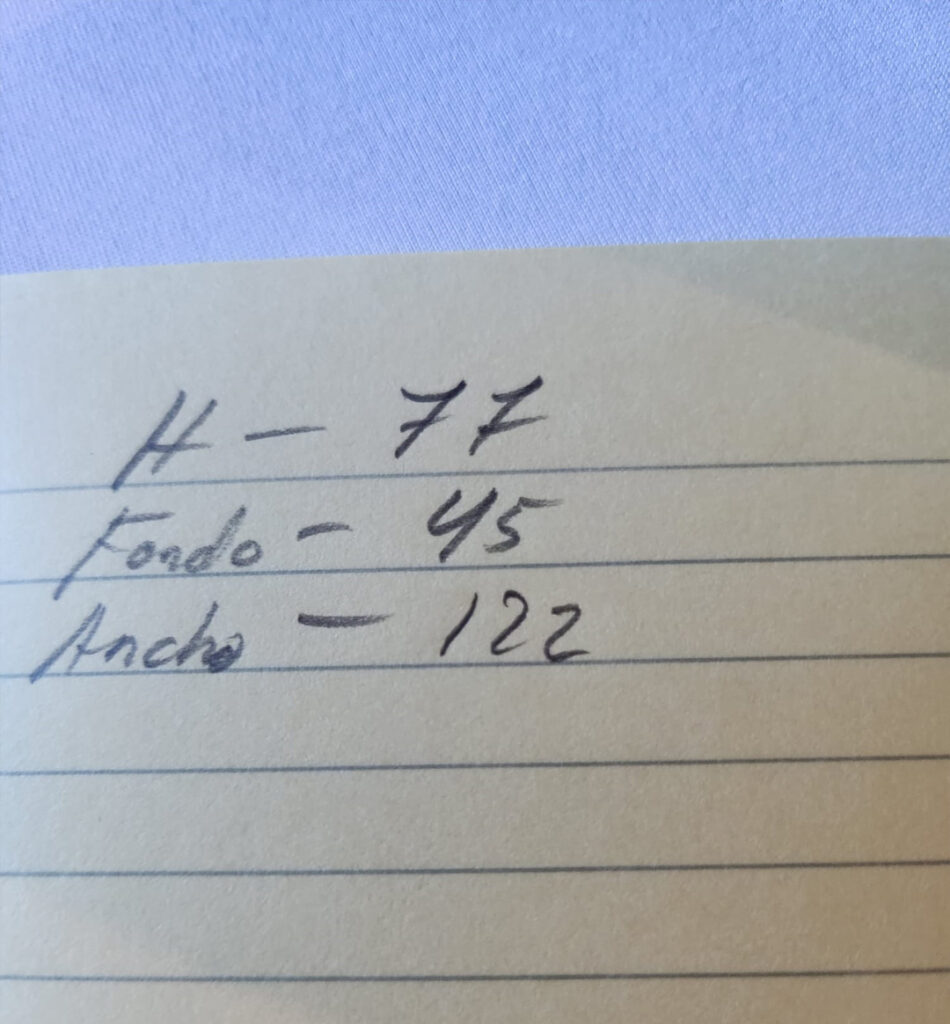 H - 77
Fondo - 45
Ancho - 122